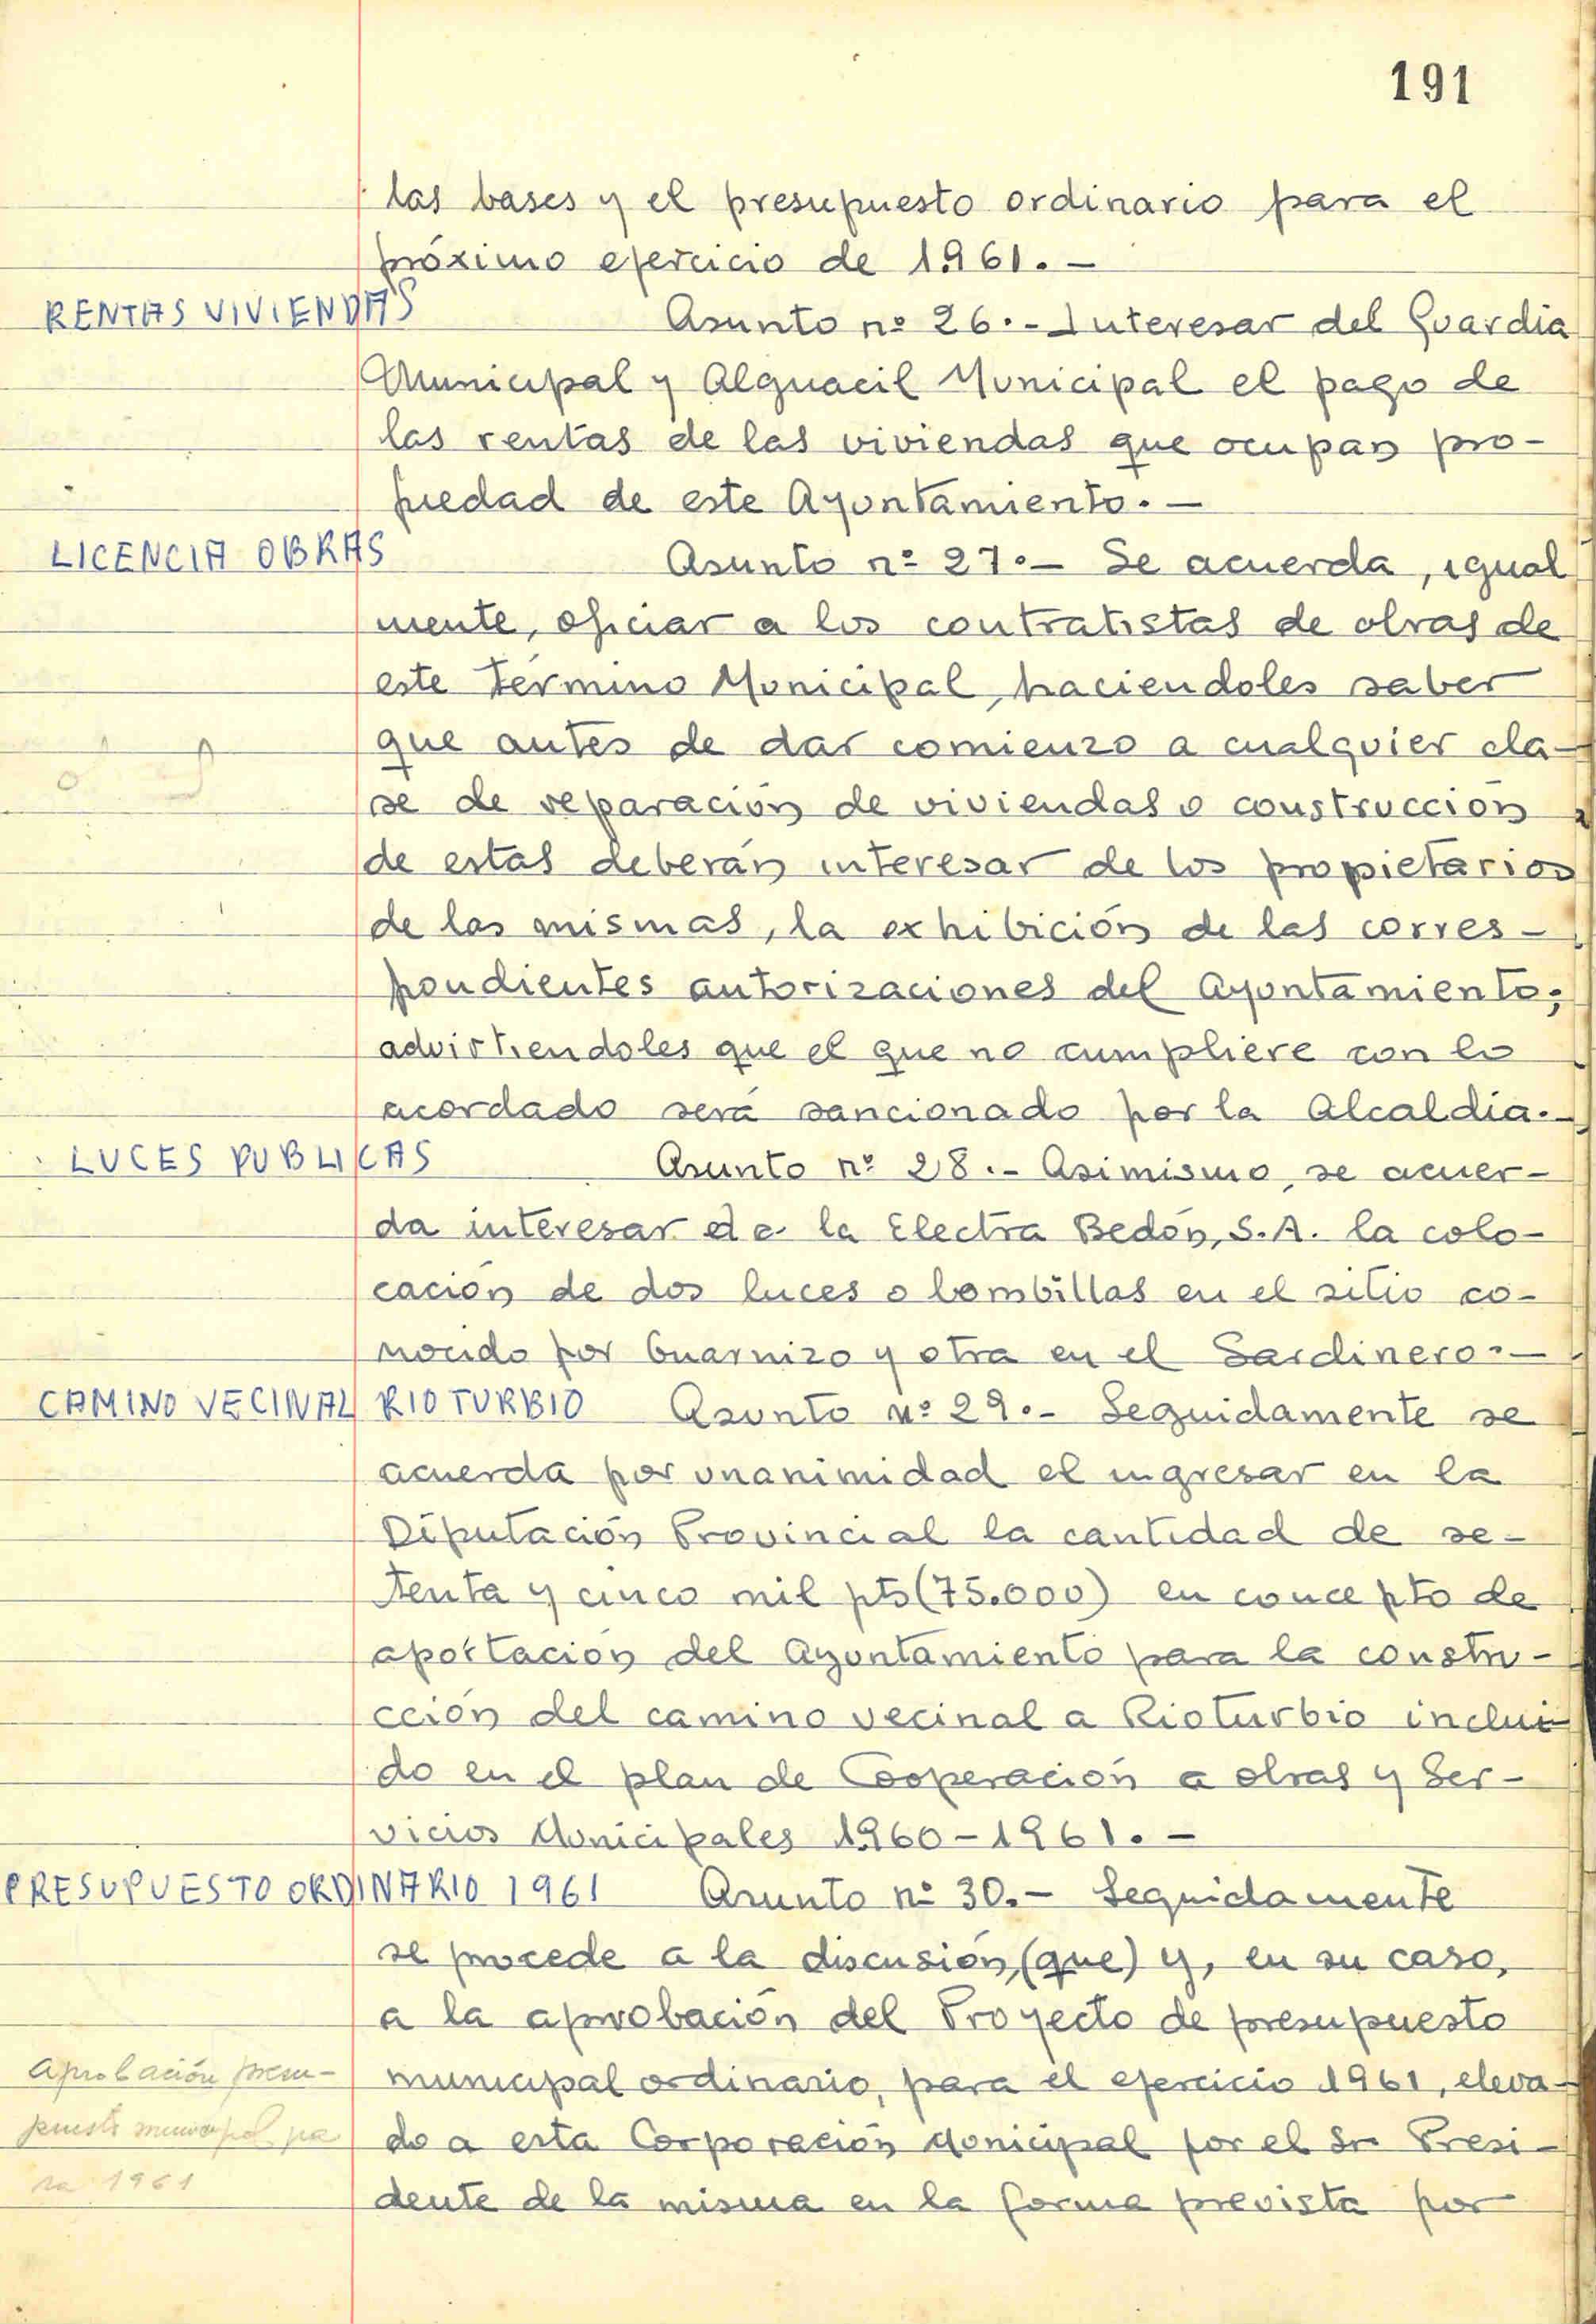 191
las bases y el presupuesto ordinario para el
próximo ejercicio de 1.961.-
RENTAS VIVIENDAS
Asunto nº 26.- Interesar del Guardia
Municipal y Alguacil Municipal el pago de
las rentas de las viviendas que ocupan pro-
piedad de este Ayuntamiento.-
LICENCIA OBRAS
Asunto nº 27.- Se acuerda, igual
mente, oficiar a los contratistas de obras de
este término Municipal, haciendoles saber
que antes de dar comienzo a cualquier cla-
se de reparación de viviendas o construcción
de estas deberán interesar de los propietarios
de las mismas, la exhibición de las corres-
pondientes autorizaciones del Ayuntamiento;
advirtiendoles que el que no cumpliere con lo
acordado será sancionado por la Alcaldia.-
LUCES PUBLICAS
Asunto nº 28.- Asimismo, se acuer-
da interesar de la Electra Bedón, S.A. la colo-
cación de dos luces o bombillas en el sitio co-
nocido por Guarnizo y otra en el Sardinero.-
CAMINO VECINAL RIOTURBIO
Asunto nº 29.- Seguidamente se
acuerda por unanimidad el ingresar en la
Diputación Provincial la cantidad de se-
tenta y cinco mil pts (75.000) en concepto de
aportación del Ayuntamiento para la constru-
cción del camino vecinal a Rioturbio inclui
do en el plan de Cooperación a obras y Ser-
vicios Municipales 1.960-1961.-
PRESUPUESTO ORDINARIO 1961
Asunto nº 30.- Seguidamente
se procede a la discusión, (que) y, en su caso,
a la aprobación del Proyecto de presupuesto
municipal ordinario, para el ejercicio 1961, eleva-
do a esta Corporación Municipal por el Sr. Presi-
dente de la misma en la forma prevista por
aprobación presu-
puesto municipal pa
ra 1961